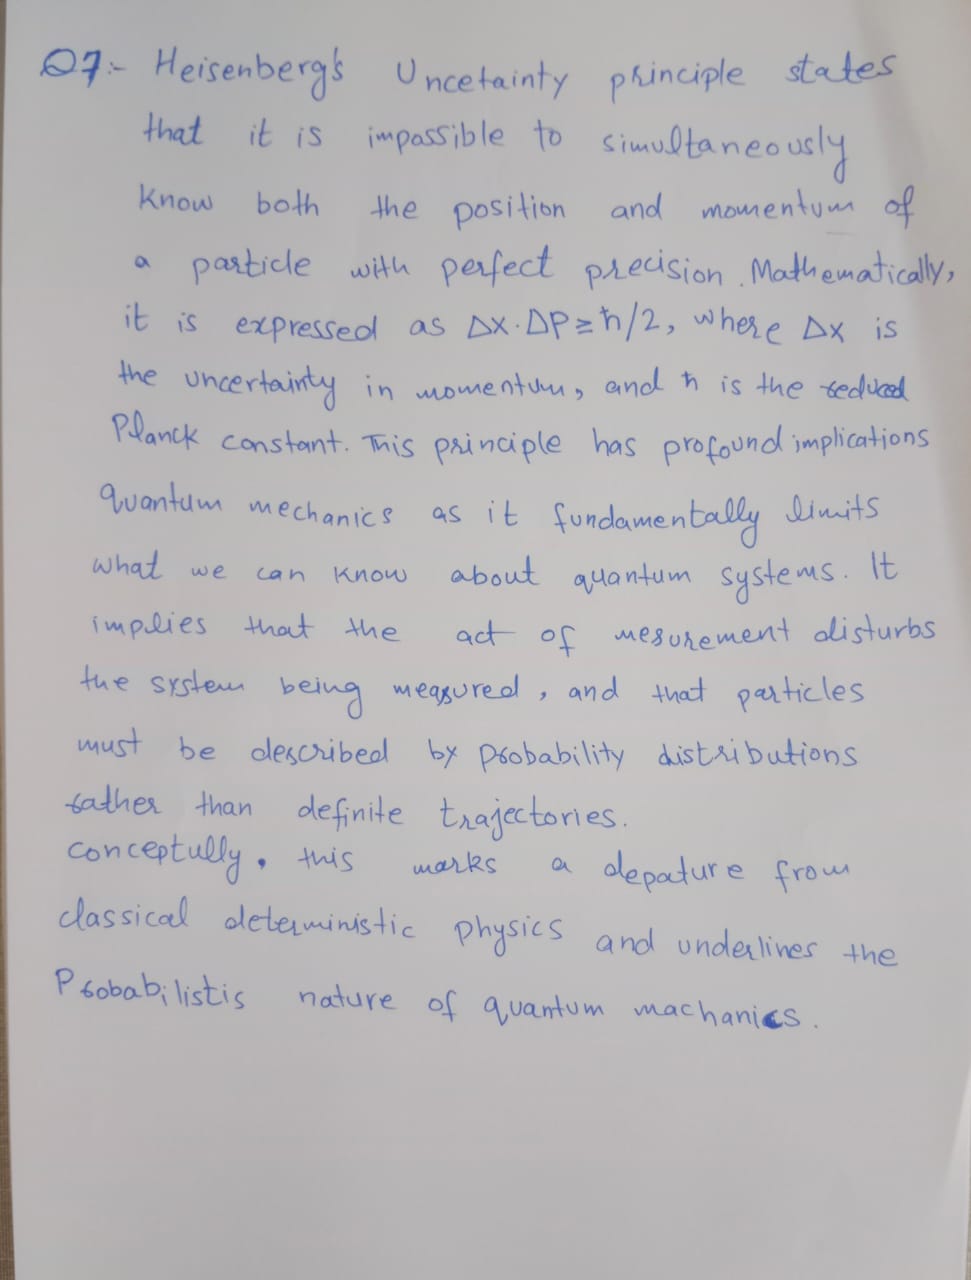 Q7:- Heisenberg's Uncetainty principle states
that it is impossible to simultaneously
Know both the position and momentum of
a particle with perfect precision. Mathematically,
it is expressed as Δx·ΔP≥ħ/2, where Δx is
the uncertainty in momentum, and ħ is the reduced
Planck constant. This principle has profound implications
quantum mechanics as it fundamentally limits
what we can know about quantum systems. It
implies that the act of mesurement disturbs
the system being measured, and that particles
must be described by probability distributions
rather than definite trajectories.
conceptully, this marks a depature from
classical deterministic physics and underlines the
Probabilistis nature of quantum machanics.